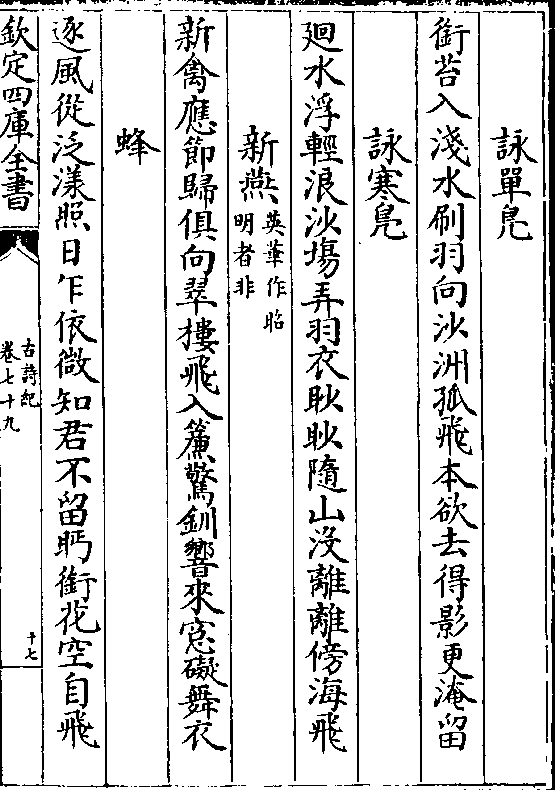 詠單鳧
銜苔入淺水刷羽向沙洲孤飛本欲去得影更淹留
詠寒鳧
廻水浮輕浪沙塲弄羽衣眇眇隨山没離離傍海飛
新燕英華作昭明者非
新禽應節歸俱向翠樓飛入簾驚釧響來窓礙舞衣
蜂
逐風從泛漾照日乍依微知君不留眄銜花空自飛
欽定四庫全書
古詩紀
卷七十九
十七